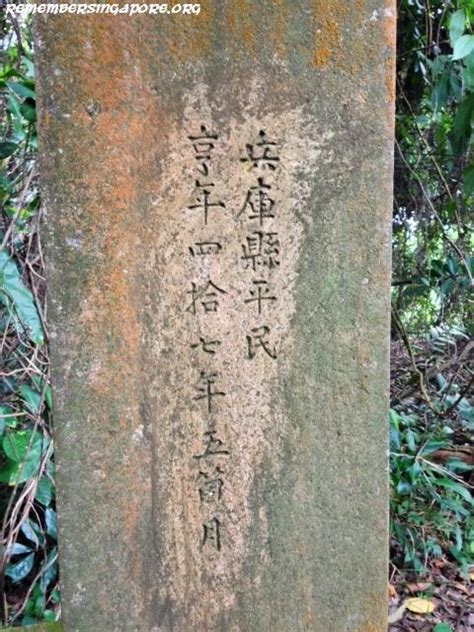 REMEMBERSINGAPORE.ORG
兵庫縣平民
亨年四拾七年五箇月